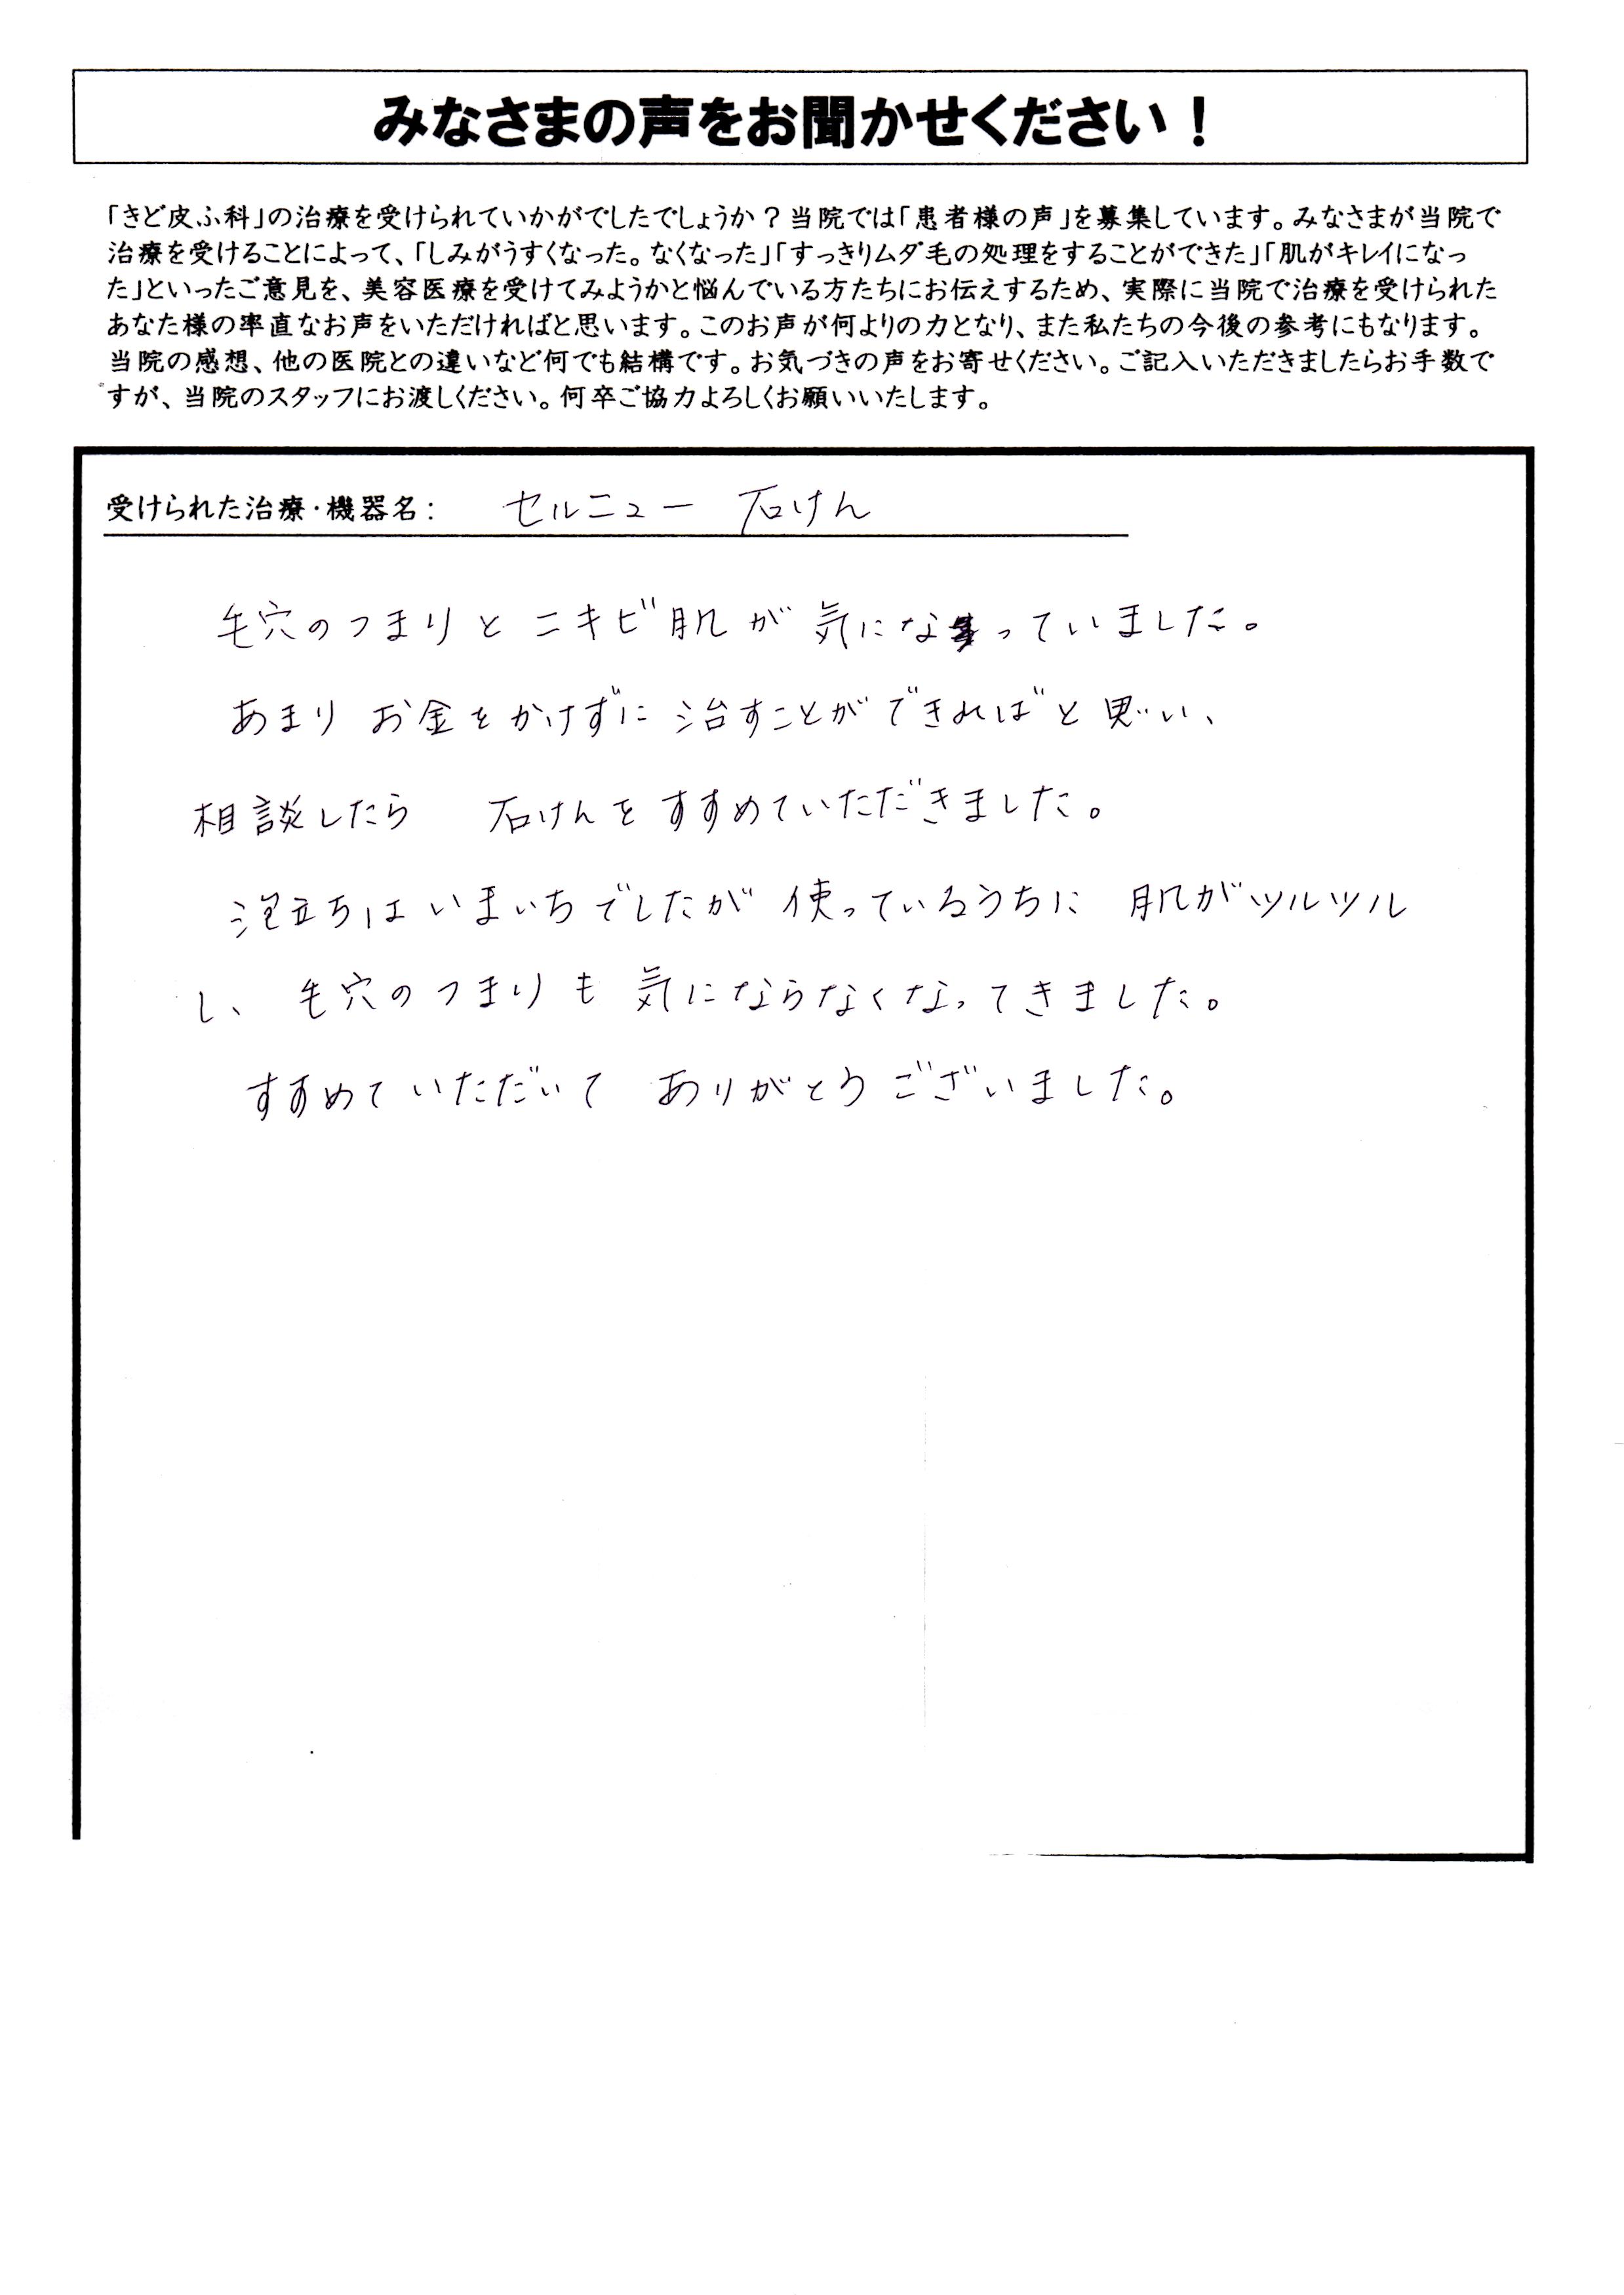 みなさまの声をお聞かせください！
「きど皮ふ科」の治療を受けられていかがでしたでしょうか？当院では「患者様の声」を募集しています。みなさまが当院で
治療を受けることによって、「しみがうすくなった。なくなった」「すっきりムダ毛の処理をすることができた」「肌がキレイになっ
た」といったご意見を、美容医療を受けてみようかと悩んでいる方たちにお伝えするため、実際に当院で治療を受けられた
あなた様の率直なお声をいただければと思います。このお声が何よりの力となり、また私たちの今後の参考にもなります。
当院の感想、他の医院との違いなど何でも結構です。お気づきの声をお寄せください。ご記入いただきましたらお手数で
すが、当院のスタッフにお渡しください。何卒ご協力よろしくお願いいたします。
受けられた治療・機器名： セルニュー 石けん
毛穴のつまりと ニキビ肌が 気になっていました。
あまり お金をかけずに 治すことができればと思い、
相談したら 石けんをすすめていただきました。
泡立ちはいまいちでしたが 使っているうちに 肌がツルツル
し、毛穴のつまりも 気にならなくなってきました。
すすめていただいて ありがとうございました。